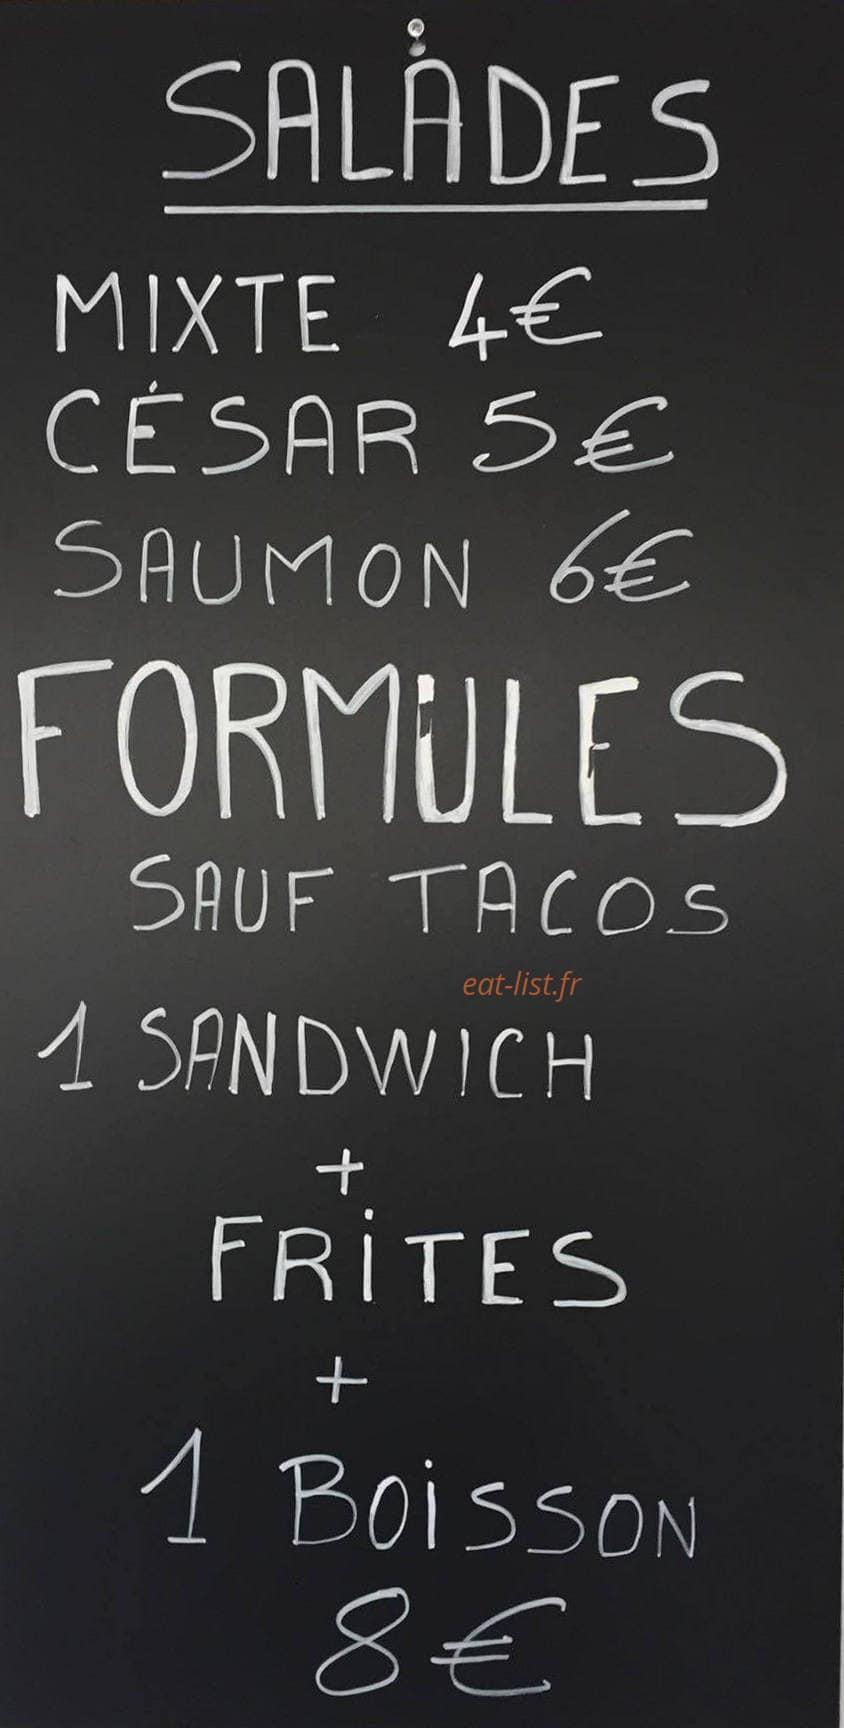 SALADES
MIXTE 4€
CÉSAR 5€
SAUMON 6€
FORMULES
SAUF TACOS
eat-list.fr
1 SANDWICH
+
FRiTES
+
1 BOiSSON
8€